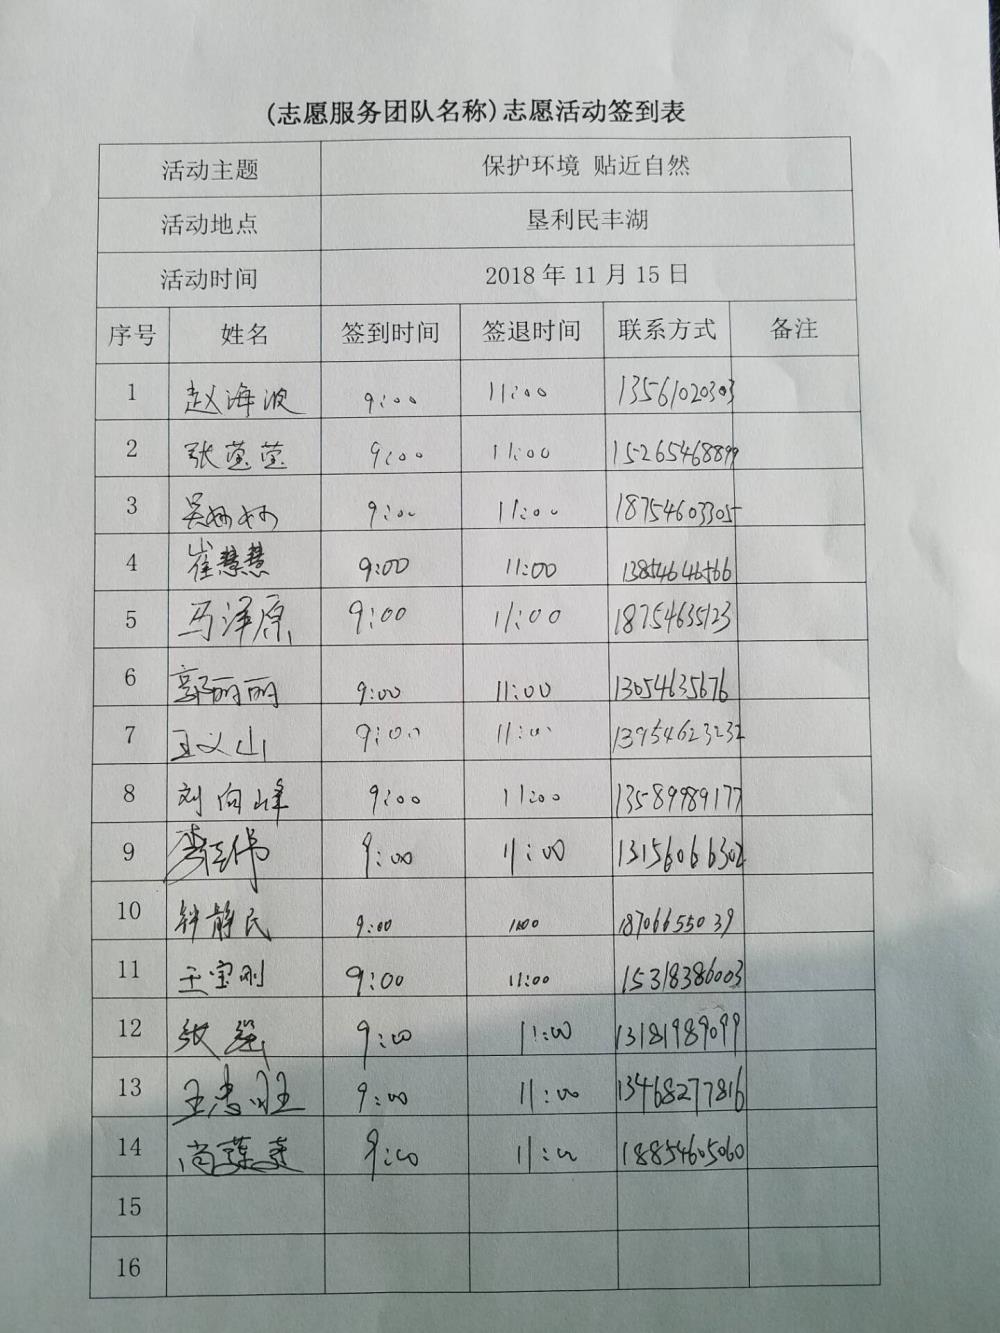 (志愿服务团队名称)志愿活动签到表
活动主题 保护环境 贴近自然
活动地点 垦利民丰湖
活动时间 2018年11月15日
序号 姓名 签到时间 签退时间 联系方式 备注
1 赵海波 9:00 11:00 13561020303
2 张莹莹 9:00 11:00 15265468899
3 吴妙妙 9:00 11:00 18754603305
4 崔慧慧 9:00 11:00 13854646566
5 马泽原 9:00 11:00 18754635123
6 郭丽丽 9:00 11:00 13054635676
7 王义山 9:00 11:00 13954623232
8 刘向峰 9:00 11:00 13589989177
9 9:00 11:00 13156066302
10 钟静民 9:00 11:00 18706655039
11 王宝刚 9:00 11:00 15318386003
12 张强 9:00 11:00 13181989099
13 王忠旺 9:00 11:00 13468277816
14 尚 9:00 11:00 18854605060
15
16